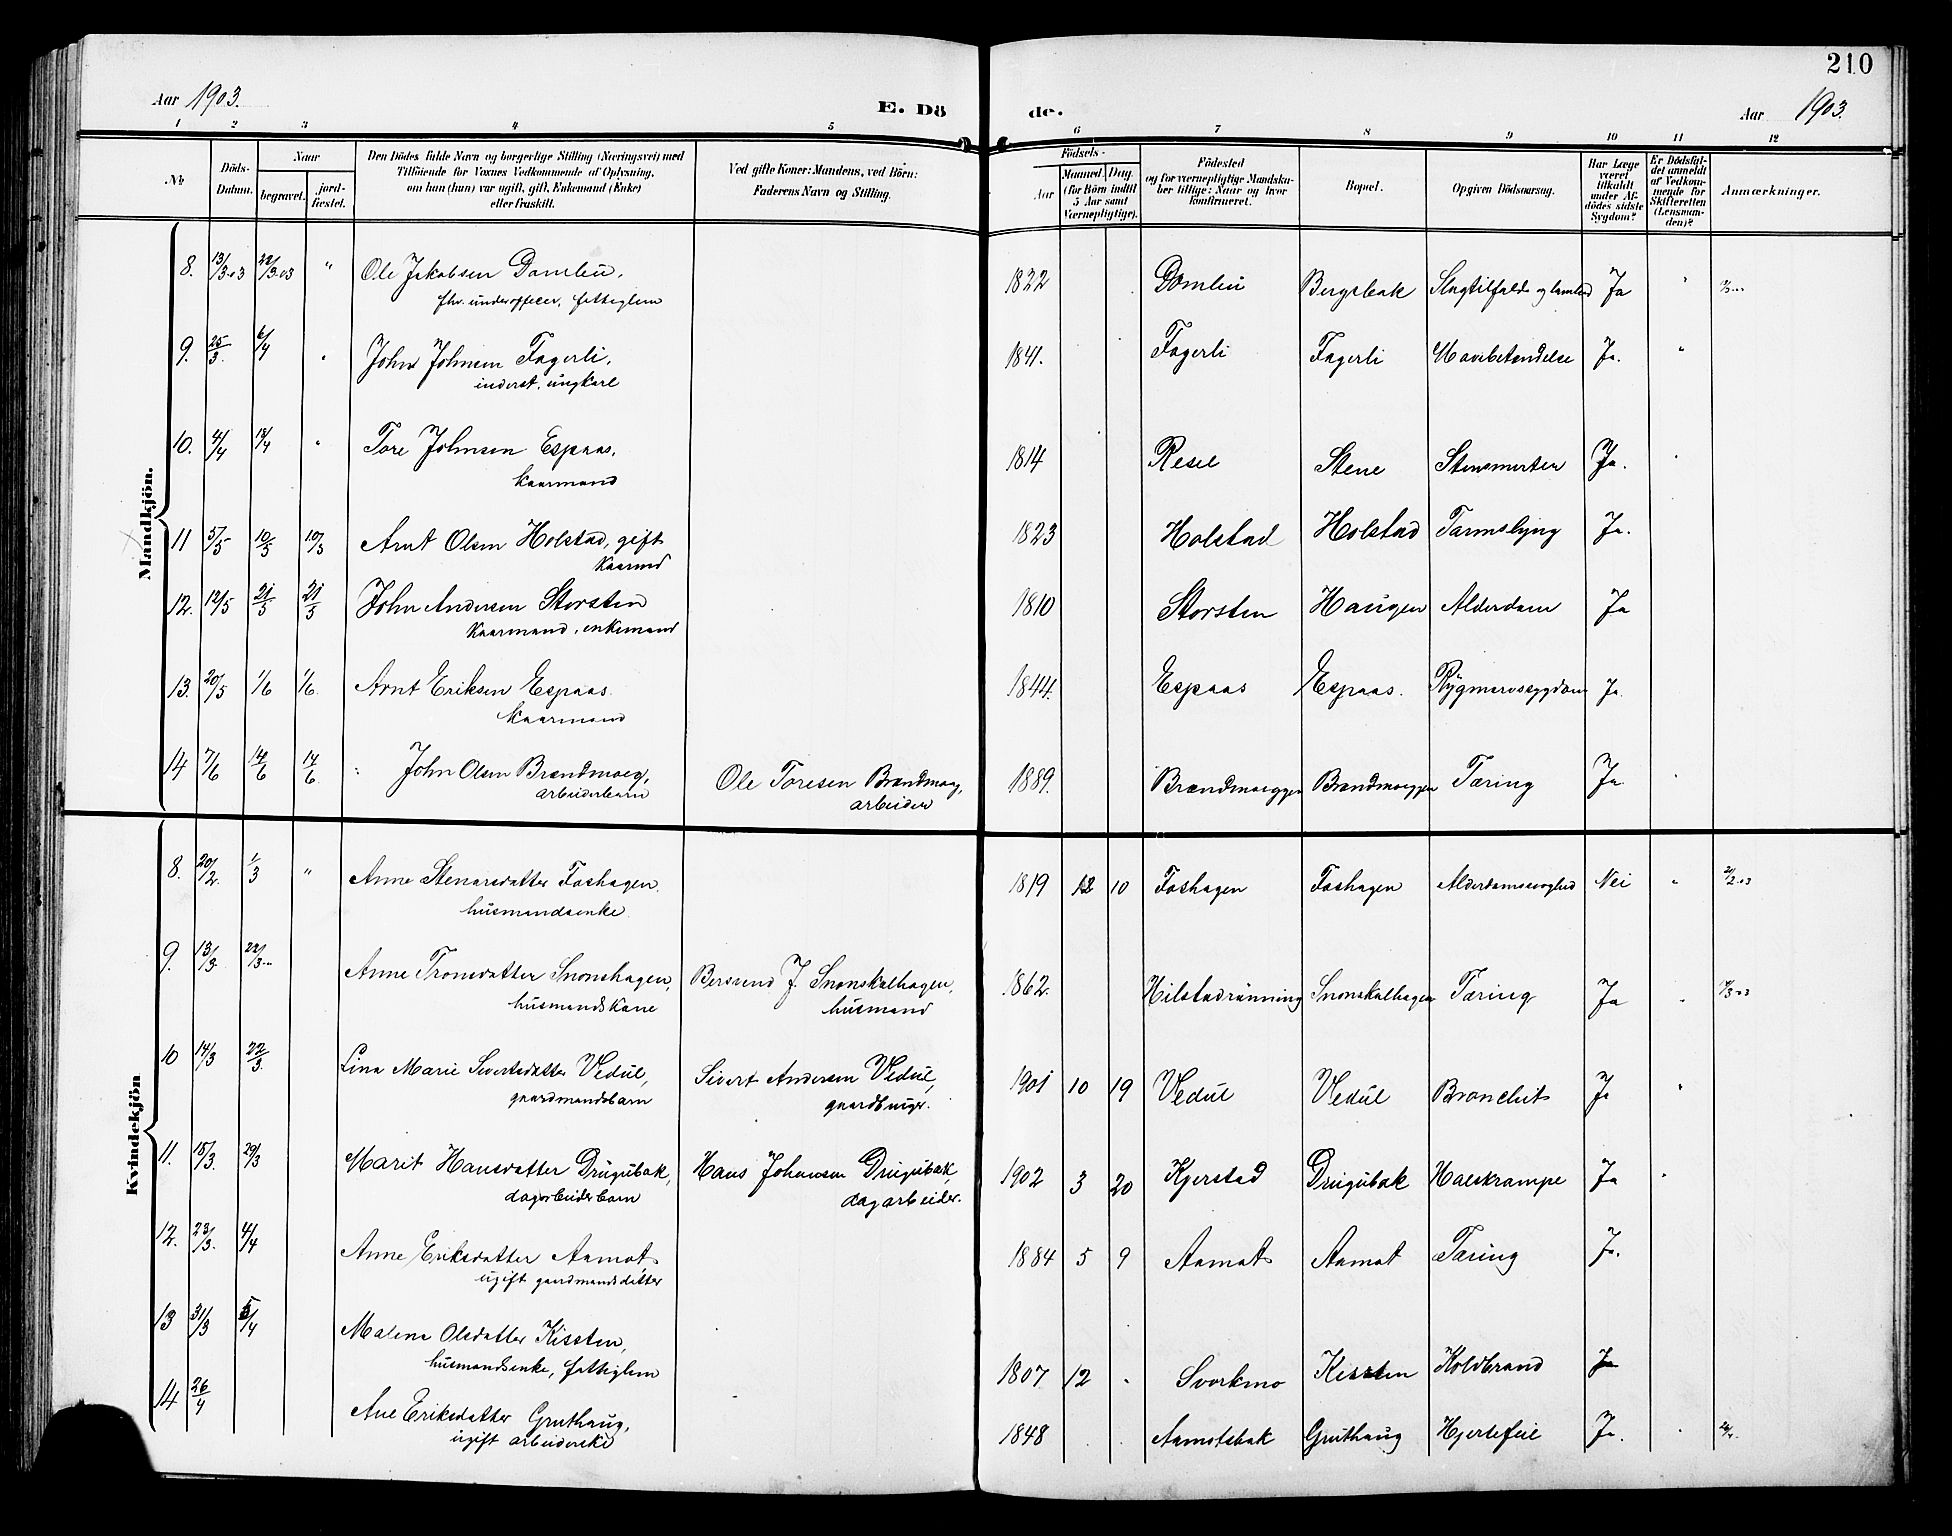 210
Aar 1903. E. Dö de. Aar 1903.
1 2 3 4 5 6 7 8 9 10 11 12
No
Döds-Datum.
Naar
begravet. jord-fæstet.
Den Dödes fulde Navn og borgerlige Stilling (Næringsvei) med
Tilföiende for Voxnes Vedkommende af Oplysning,
om hun (han) var ugift, gift, Enkemand (Enke)
eller fraskilt.
Ved gifte Koner: Mandens, ved Börn:
Faderens Navn og Stilling.
Födsels-
Aar Maaned. Dag.
(for Börn indtil
5 Aar samt
Værnepligtige).
Födested
og for værnepligtige Mandska-
ber tillige: Naar og hvor
konfirmeret.
Bopæl.
Opgiven Dödsaarsag.
Har Læge
været
tilkaldt
under Af-
dödes sidste
Sygdom?
Er Dödsfal-
det anmeldt
af Vedkom-
mende for
Skifteretten
(Lensman-
den)?
Anmærkninger.
Mandkjön.
8. 13/3 03 22/3 03 " Ole Jakobsen Domliu, 1822 Domliu Bergsbak Slagtilfald og Ja "
fhv. underofficer, fattiglem
9. 25/3 6/4 " John Johnsen Fagerli, 1841. Fagerli Fagerli Mavebetendelse Ja. "
inderst, ungkarl
10. 4/4 13/4 " Tore Johnsen Espaas, 1814 Resel Stene Stensmerter Ja.
kaarmand
11 5/5 10/5 10/5 Arnt Olsen Holstad, gift 1823 Holstad Holstad Tarmslyng Ja.
kaarmd
12. 12/5 21/5 21/5 John Andersen Storsten 1810 Storsten Haugen Alderdom Ja
kaarmand, enkemand
13. 20/5 1/6 1/6. Arnt Eriksen Espaas. 1844. Espaas Espaas. Rygmarvssygdom Ja.
kaarmand
14 7/6 14/6 14/6. John Olsen Brændmoeg, Ole Toresen Brændmoeg, 1889. Brændmoeggen Brændmoeggen Tæring Ja
arbeiderbarn arbeider
Kvindekjön
8. 20/2. 1/3 " Anne Stenarsdatter Foshagen. 1819 12 10 Foshagen Foshagen Alderdomssvaghed Nei " 21/2 03
husmandsenke.
9. 13/3. 22/3 Anne Tronsdatter Snonshagen, Bersvend J. Snonskalhagen, 1862. Hilstadrønning Snonskalhagen Tæring Ja "
husmandskone husmand
10 14/3 22/3. Lina Marie Sivertsdatter Vedul, Sivert Andersen Vedul, 1901 10 19 Vedul Vedul Bronchit Ja "
gaardmandsbarn gaardbruger.
11. 18/3. 29/3 Marit Hansdatter Drugubak, Hans Johansen Drugubak, 1902 3 20 Kjerstad Drugubak Halskrampe Ja
dagarbeiderbarn dagarbeider.
12. 23/3. 4/4 Anne Eriksdatter Aamot, 1884 5 9 Aamot Aamot Tæring Ja.
ugift gaardmandsdatter
13 31/3 5/4 Malena Olsdatter Kissten, 1807 12 " Svorkmo Kissten Koldbrand Ja
husmandsenke, fattiglem
14 26/4 Ane Eriksdatter Gruthaug, 1848 Aamotsbak Gruthaug Hjertefeil Ja.
ugift arbeiderske